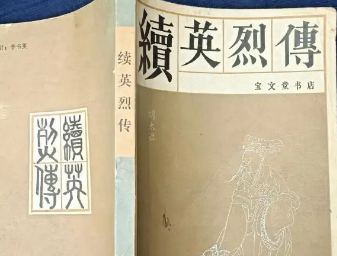 續英烈傳
宝文堂书店
续英烈传
續英
烈傳
李书英